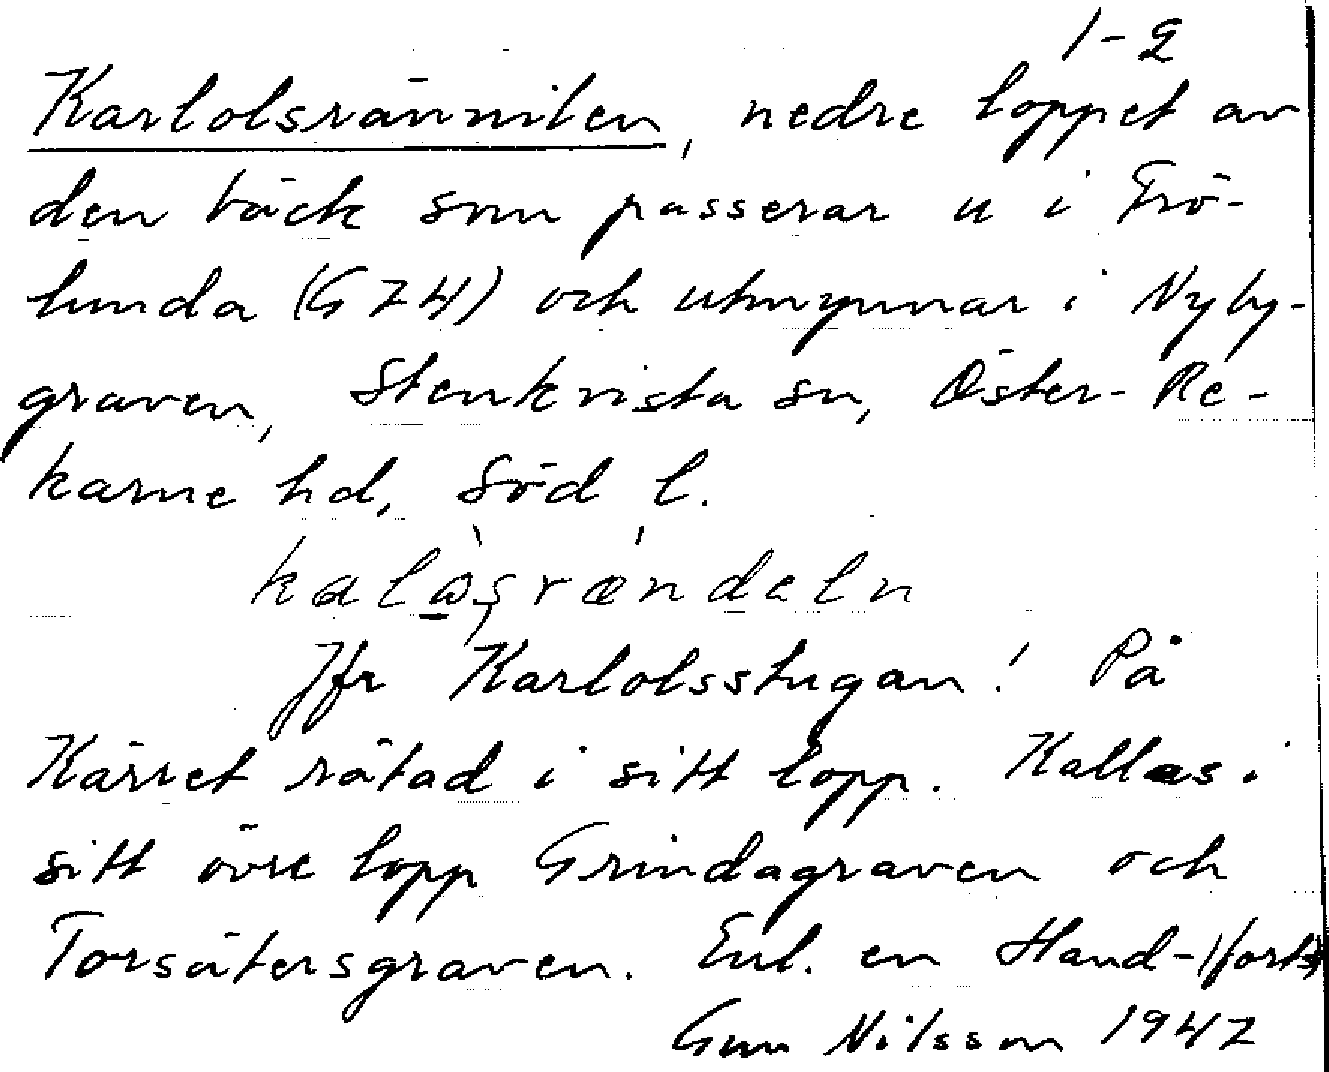 1-2
Karlolsrännilen, nedre loppet av
den bäck som passerar u i Frö-
lunda (G 74) och utmynnar i Nyby-
graven, Stenkvista sn, Öster-Re-
karne hd, Söd l.
Jfr Karlolsstugan! På
Kärret rätad i sitt lopp. Kallas i
sitt övre lopp Grindagraven och
Torsätersgraven. Enl. en Hand- (forts)
Gun Nilsson 1947